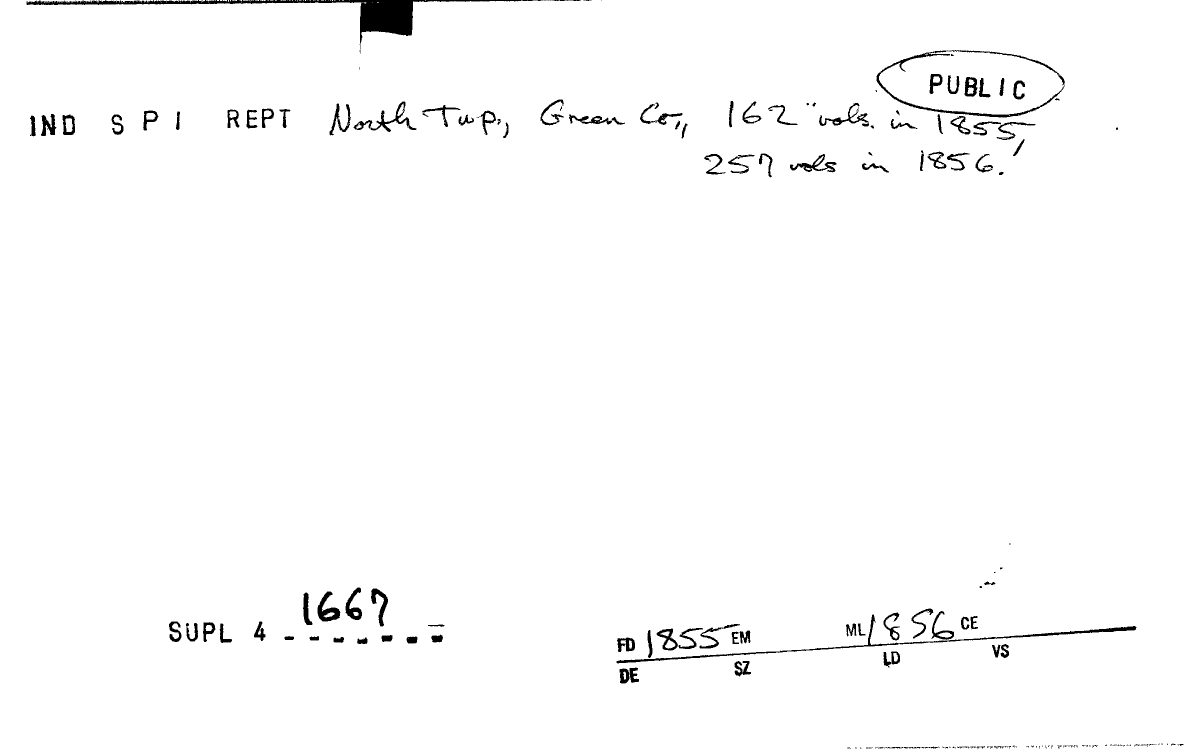 PUBLIC
IND S P I REPT North Twp., Green Co., 162 vols. in 1855,
257 vols in 1856.
SUPL 4 1667
FD 1855 EM ML 1856 CE
DE SZ LD VS